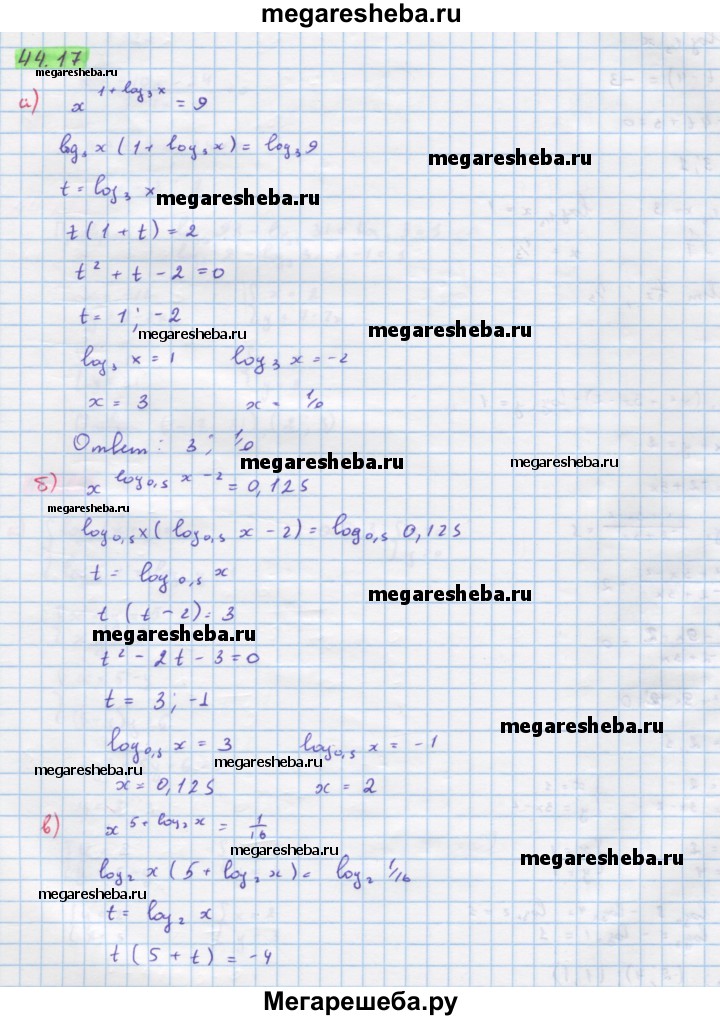 megaresheba.ru
44.17
megaresheba.ru
а) x^(1 + log₃ x) = 9
log₃ x (1 + log₃ x) = log₃ 9
megaresheba.ru
t = log₃ x
megaresheba.ru
t (1 + t) = 2
t² + t - 2 = 0
t = 1 ; -2
megaresheba.ru
megaresheba.ru
log₃ x = 1 log₃ x = -2
x = 3 x = 1/9
Ответ: 3 ; 1/9
megaresheba.ru
megaresheba.ru
б) x^(log₀,₅ x - 2) = 0,125
megaresheba.ru
log₀,₅ x ( log₀,₅ x - 2) = log₀,₅ 0,125
t = log₀,₅ x
megaresheba.ru
t (t - 2) = 3
megaresheba.ru
t² - 2t - 3 = 0
t = 3 ; -1
megaresheba.ru
log₀,₅ x = 3 log₀,₅ x = -1
megaresheba.ru
megaresheba.ru
x = 0,125 x = 2
в) x^(5 + log₂ x) = 1/16
megaresheba.ru
log₂ x (5 + log₂ x) = log₂ 1/16
megaresheba.ru
t = log₂ x
t (5 + t) = -4
Мегарешеба.ру